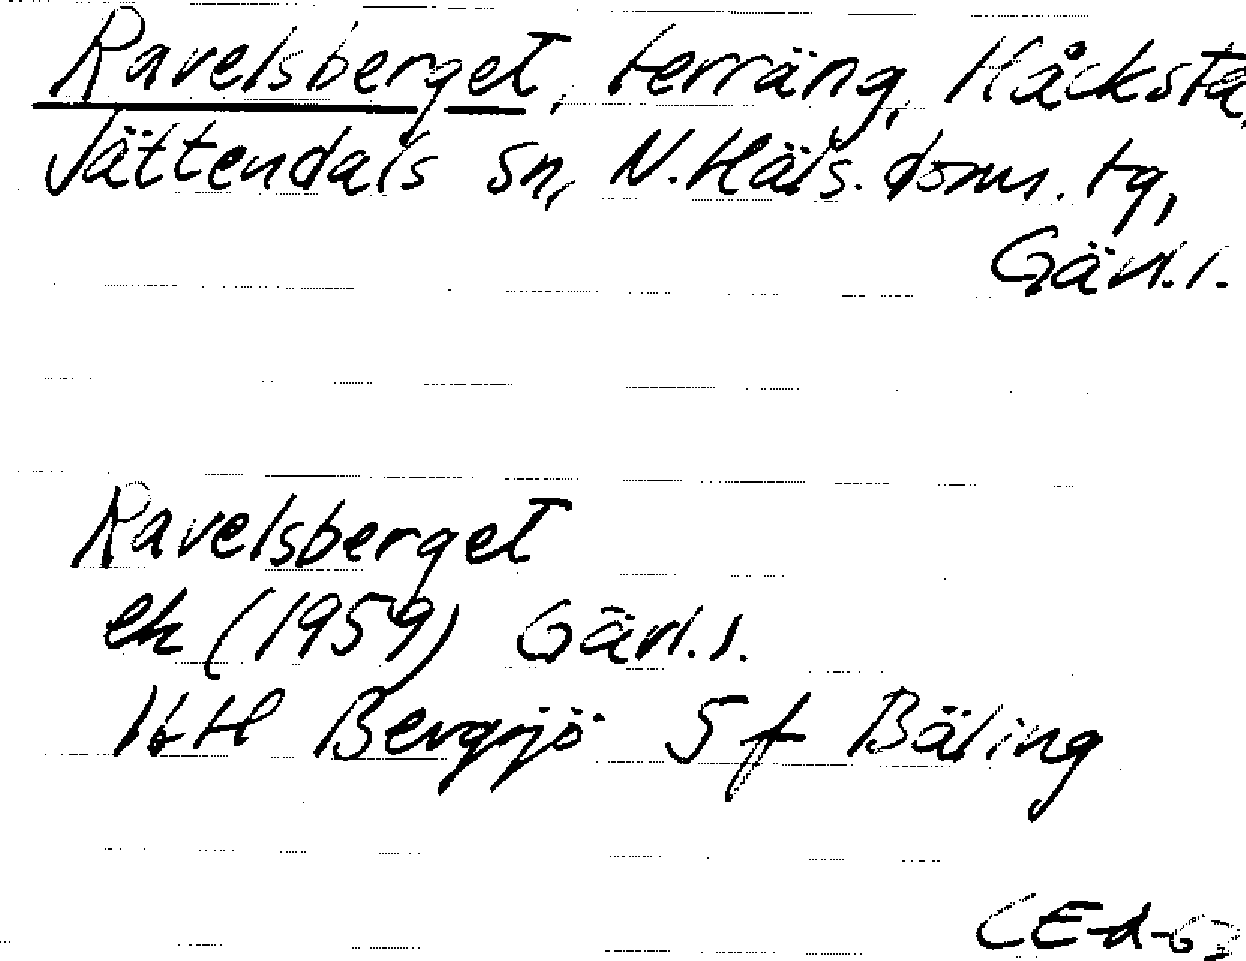 Ravelsberget, terräng, Håcksta,
Jättendals sn, N. Häls. doms. tg,
Gävl.l.
Ravelsberget
ek (1959) Gävl.l.
16H Bergsjö 5 f Bäling
CE-d-63